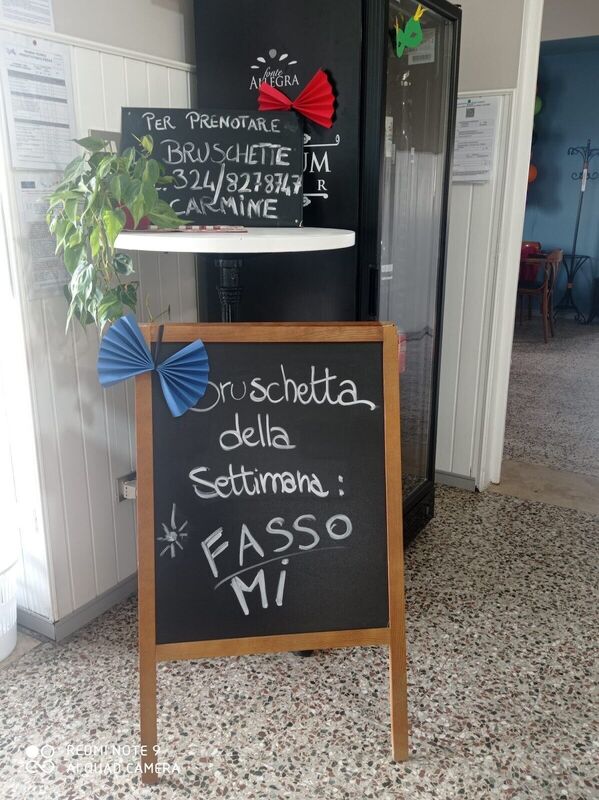 fonte
ALLEGRA
PER PRENOTARE
BRUSCHETTE
324/8278747
CARMINE
UM
R
Bruschetta
della
Settimana:
FASSO
Mi
REDMI NOTE 9
AI QUAD CAMERA